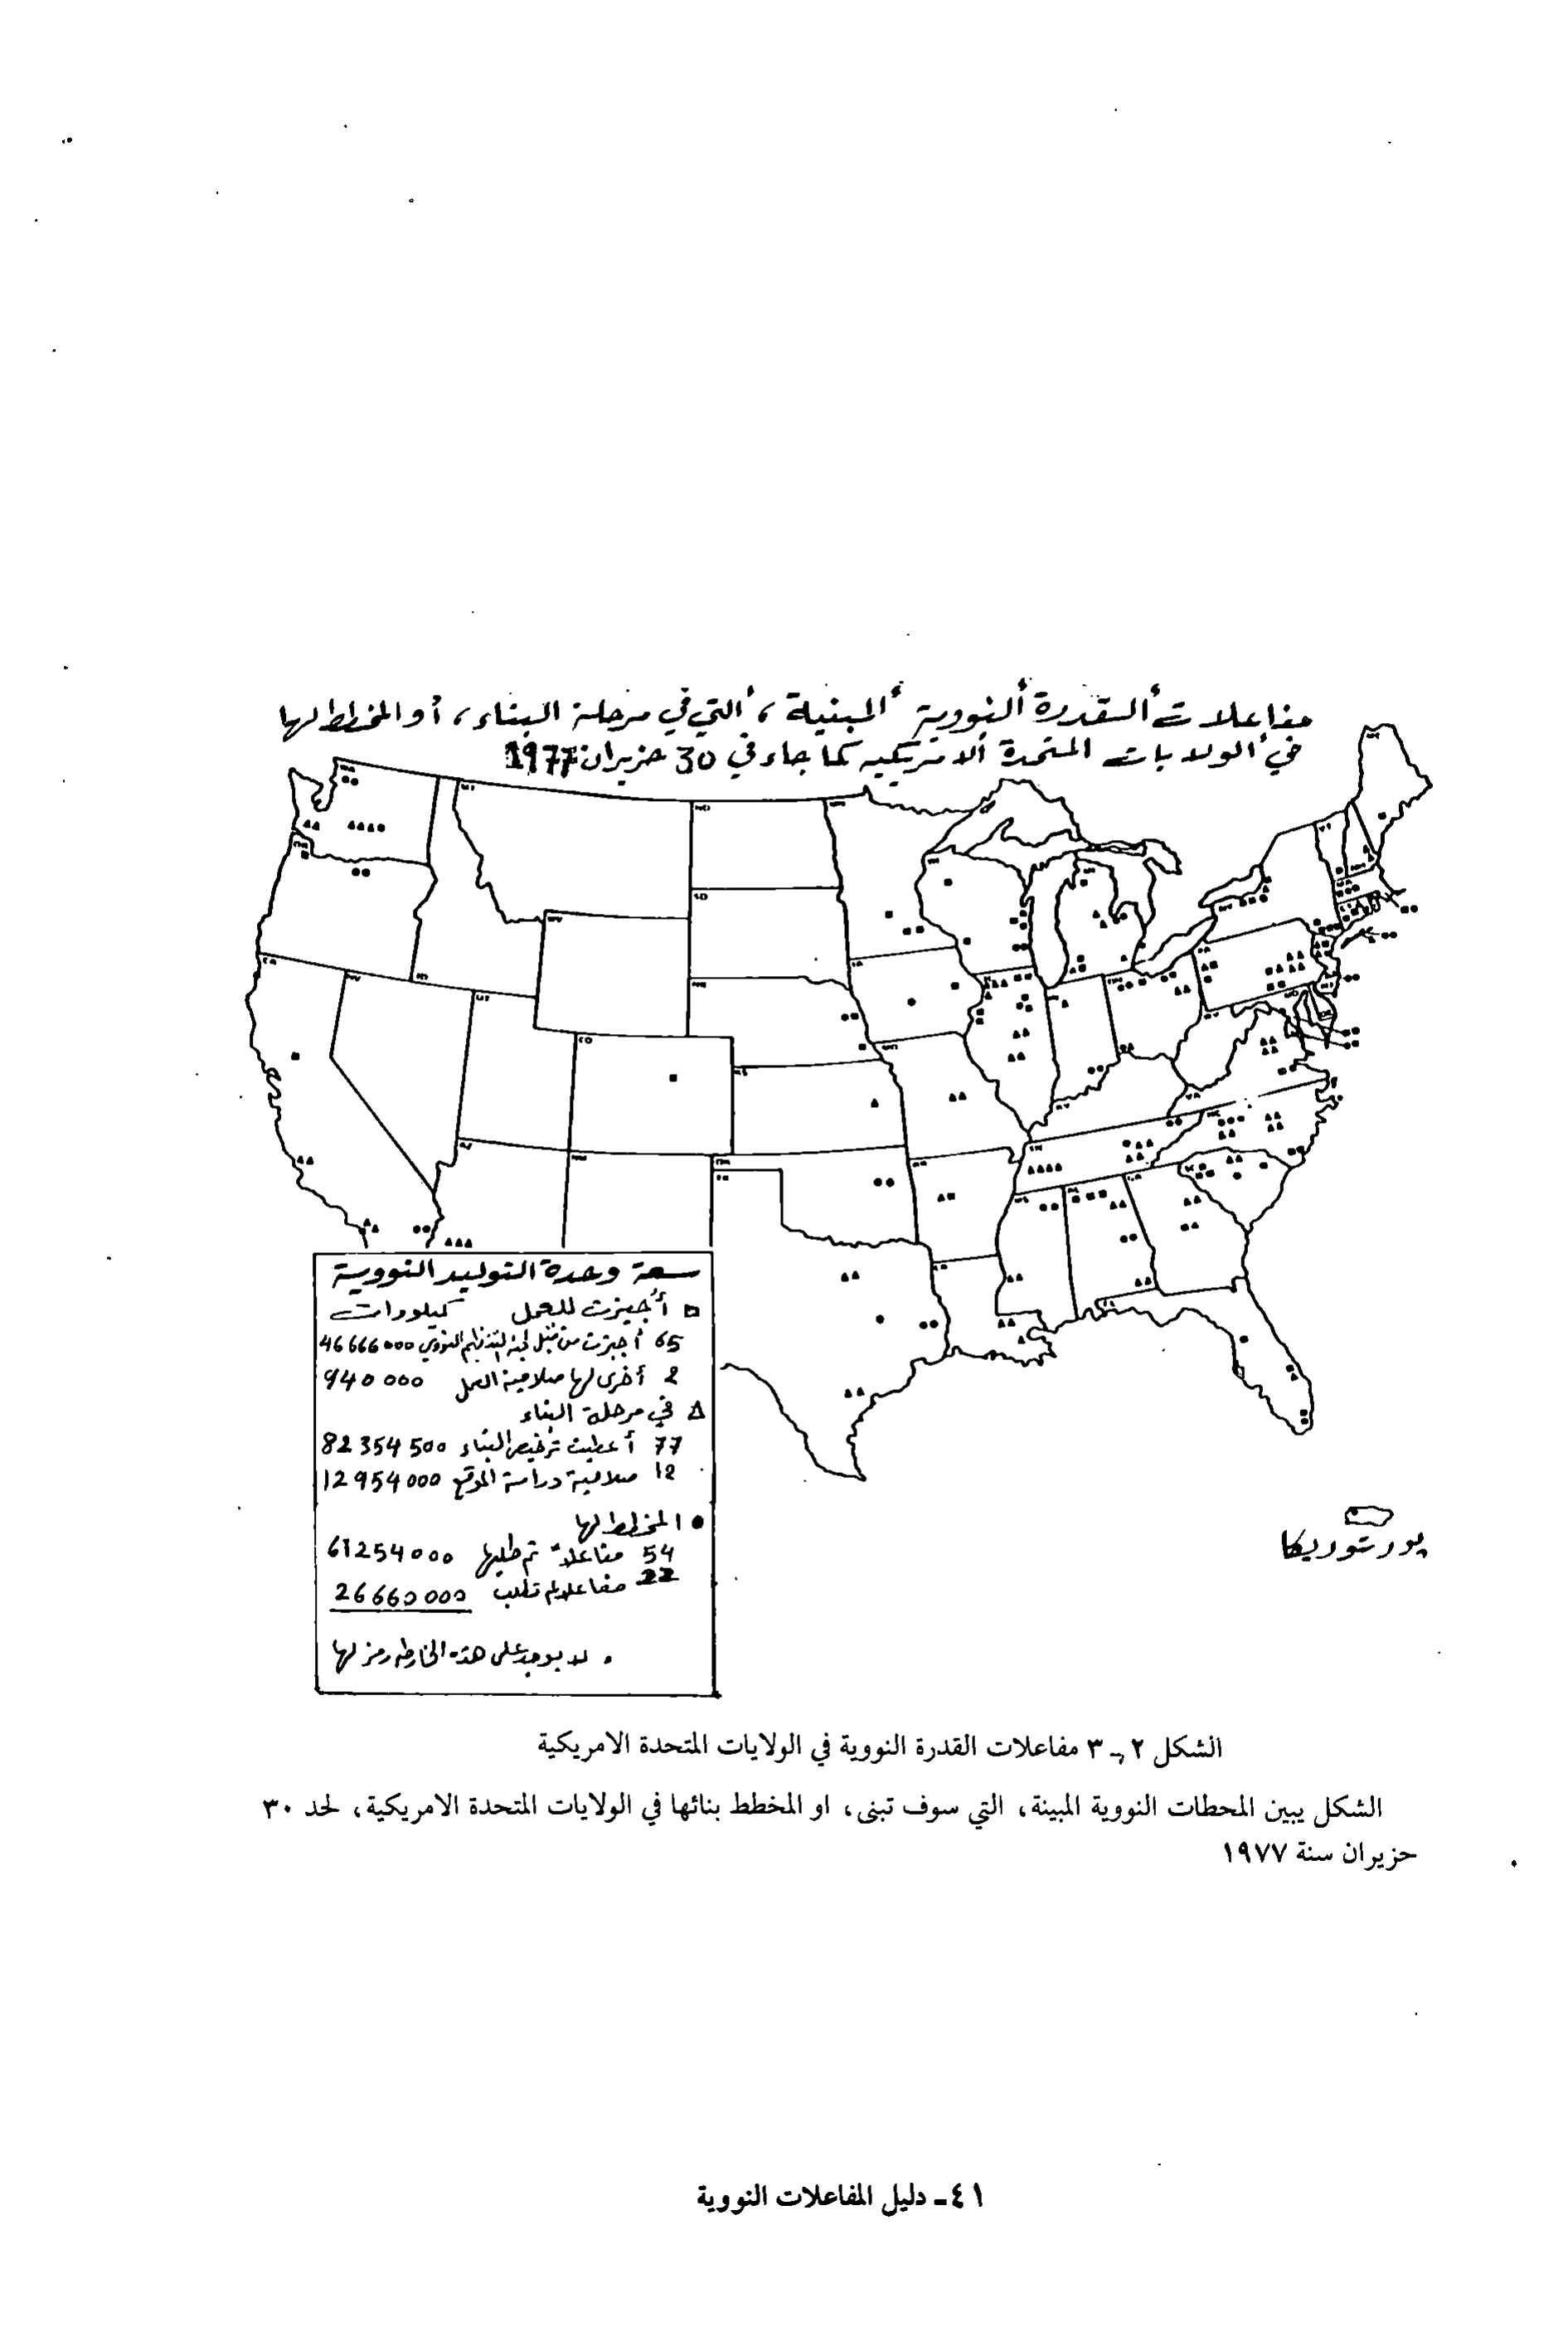 مفاعلات القدرة النووية المبنية، التي في مرحلة البناء، أو المخطط لها
في الولايات المتحدة الامريكيه كما جاء في 30 حزيران 1977
سعة وحدة التوليد النووية
□ أجيزت للعمل كيلووات
65 أجيزت من قبل لجنة التنظيم النووي 46666000
2 أخرى لها صلاحية العمل 940000
Δ في مرحلة البناء
77 أعطيت ترخيص البناء 82354500
12 صلاحية دراسة الموقع 12954000
● المخطط لها
54 مفاعلا تم طلبها 61254000
22 مفاعلا لم تطلب 26660000
• لا يوجد على هذه الخارطه رمز لها
بورتوريكا
الشكل ٢ - ٣ مفاعلات القدرة النووية في الولايات المتحدة الامريكية
الشكل يبين المحطات النووية المبينة، التي سوف تبنى، او المخطط بنائها في الولايات المتحدة الامريكية، لحد ٣٠
حزيران سنة ١٩٧٧
٤١ - دليل المفاعلات النووية